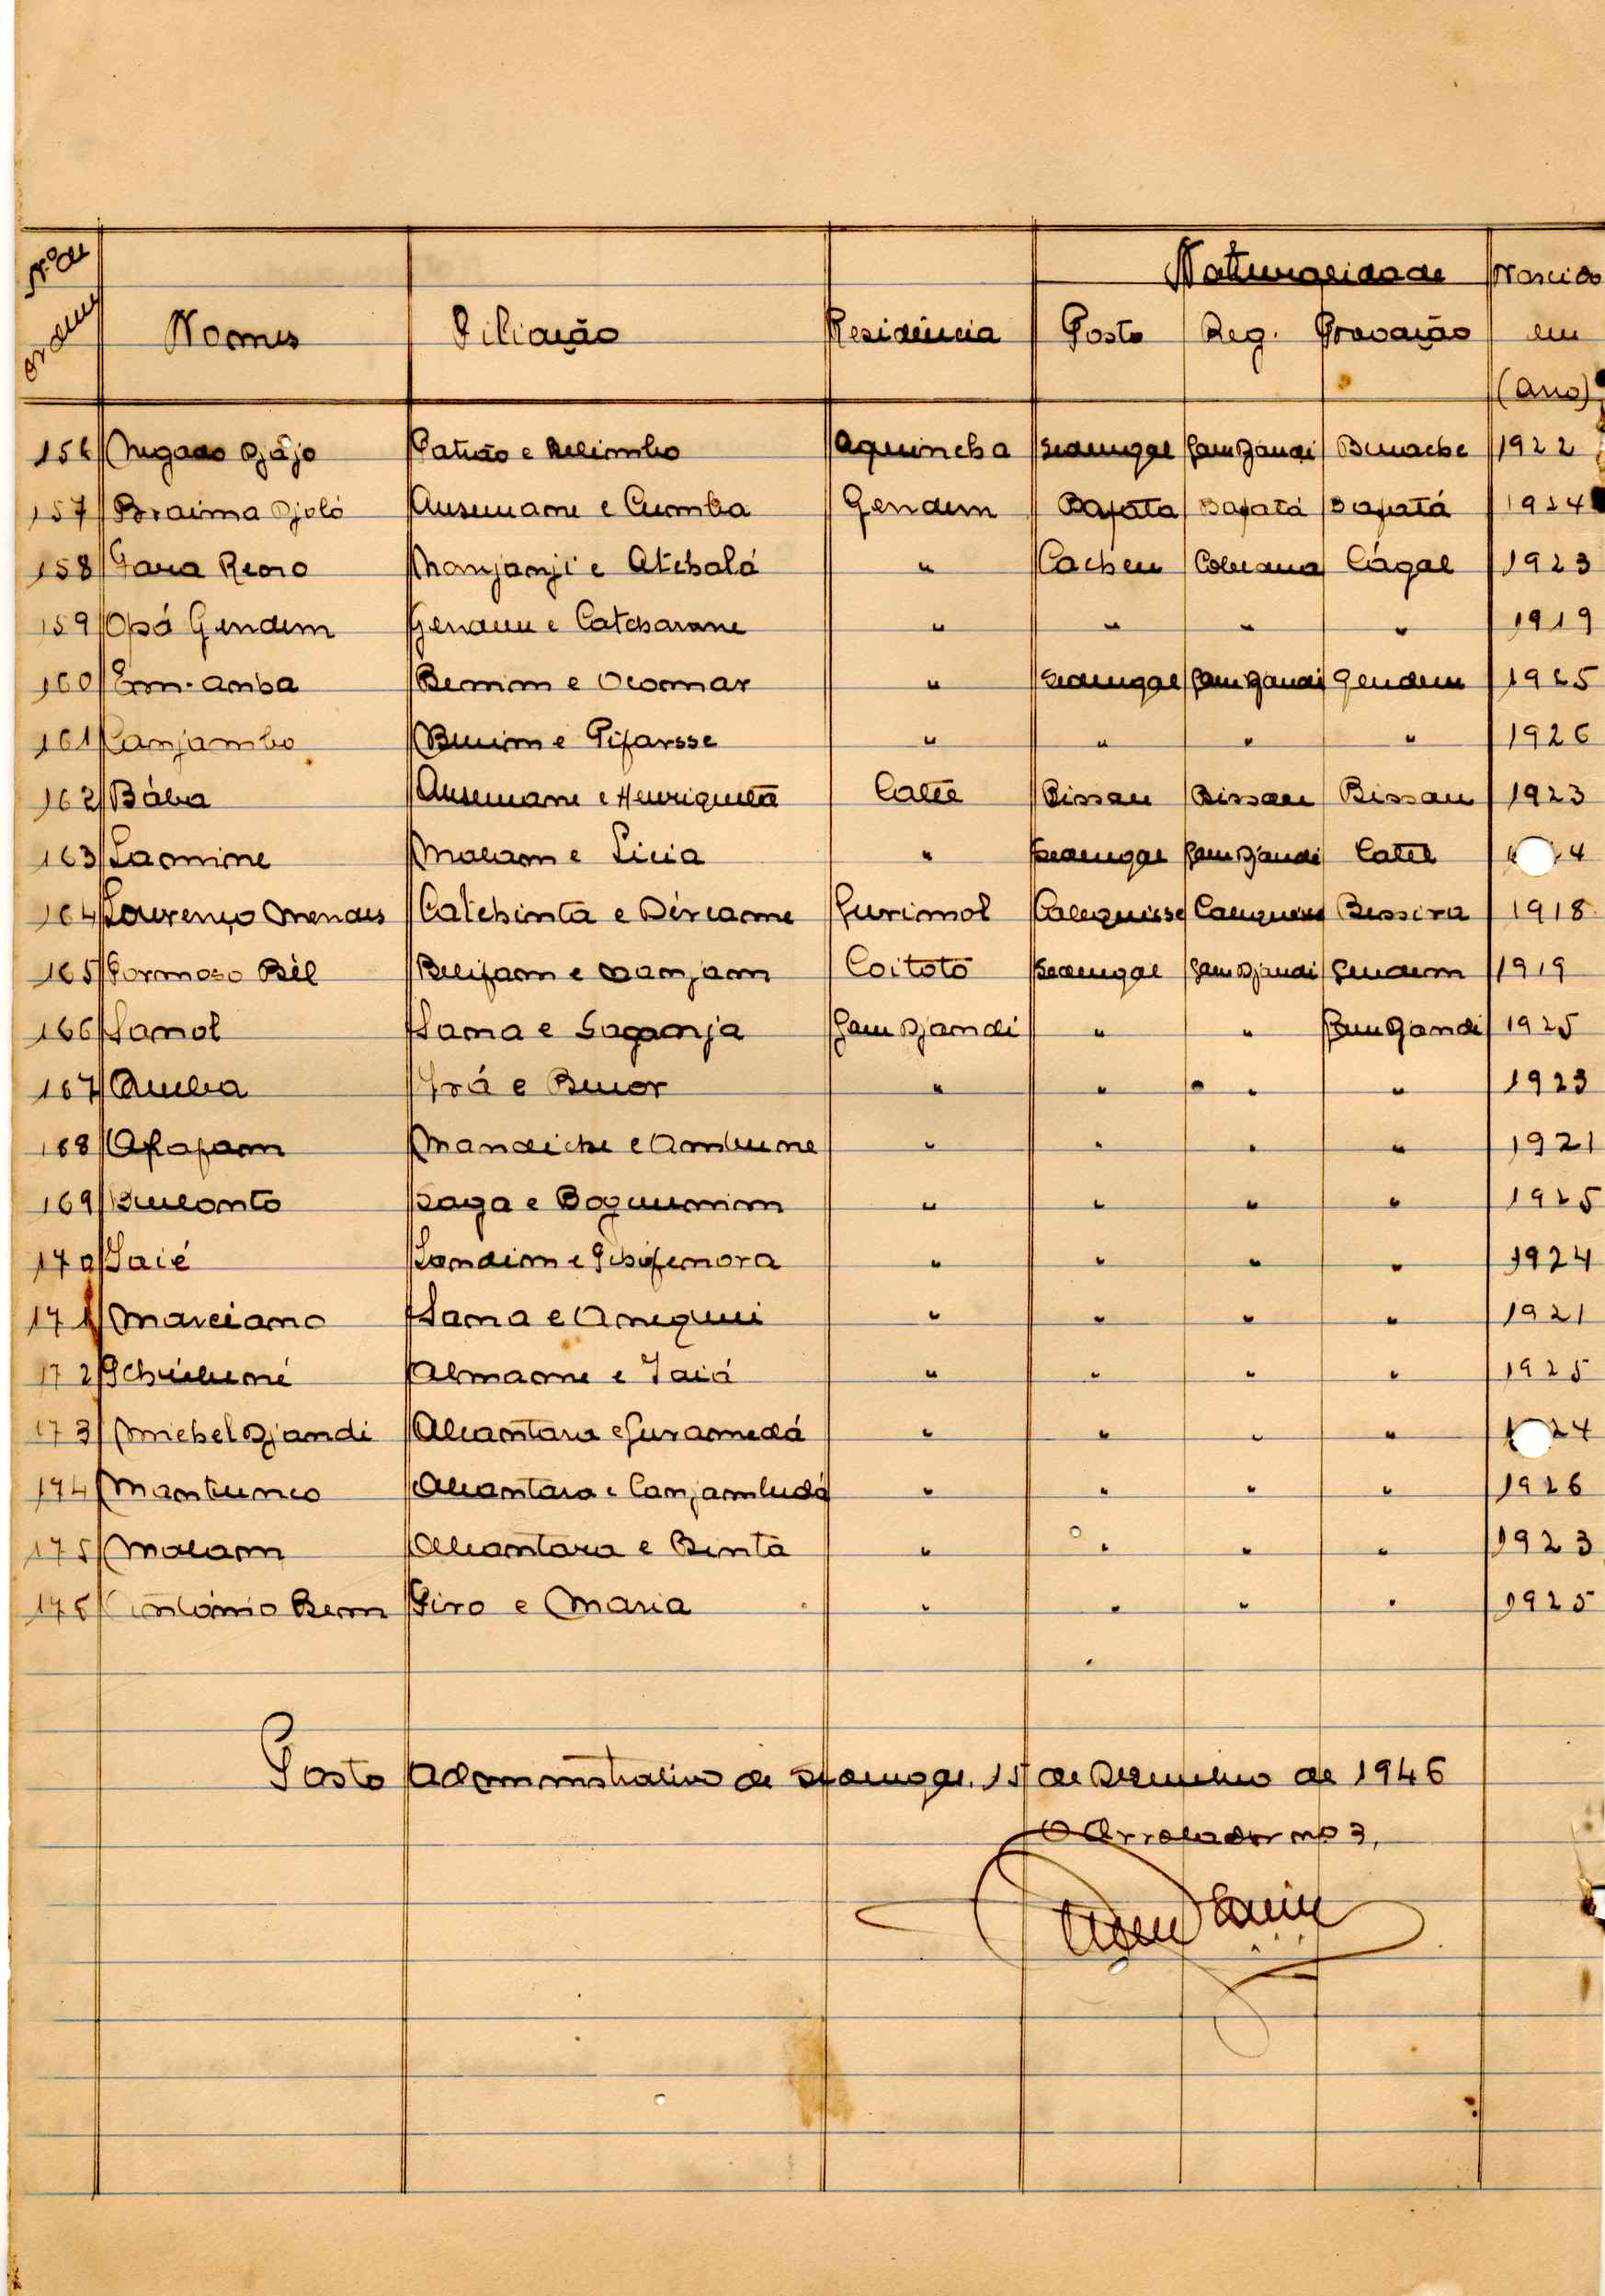 Nº de ordem Nomes Filiação Residência Naturalidade Posto Reg. Provoação Nascido em (ano)
156 Djájo Patrão e Belimbo Aquincha Sedengal Jam Djandi Binache 1922
157 Braima Djoló Ansumane e Cumba Gendem Bafata Bafatá Bafatá 1924
158 Reno Monjanji e Atchaló " Cacheu Cobiana Cágal 1923
159 Opá Gendem Gendem e Catcharame " " " " 1919
160 Em-anba Bemim e Ocomar " Sedengal Jam Djandi Gendem 1925
161 Canjambo Buim e Pifarsse " " " " 1926
162 Bába Ansumane e Henriqueta Calté Bissau Bissau Bissau 1923
163 Lamine Malam e Licia " Sedengal Jam Djandi Calté 4
164 Lourenço Mendes Catchinta e Dércame Jurimol Calequisse Calequisse Bessira 1918
165 Formoso Bél Belifam e Danjam Coitoto Sedengal Jam Djandi Gendem 1919
166 Samol Sama e Saganja Jam Djandi " " Jam Djandi 1925
167 e Buor " " " " 1923
168 Afafam Mandiche e Ambume " " " " 1921
169 Bulonto Saga e Boguumim " " " " 1925
170 Jaié Landim e " " " " 1924
171 Marciano Sama e Anequi " " " " 1921
172 Almame e Jaiá " " " " 1925
173 Michel Djandi Alcantara e Juramedá " " " " 24
174 Mantunco Alcantara e Canjambudá " " " " 1926
175 Malam Alcantara e Binta " " " " 1923
176 António Bem Piro e Maria " " " " 1925
Posto Administrativo de Sedengal, 15 de Dezembro de 1946
O Arrolador nº 3,